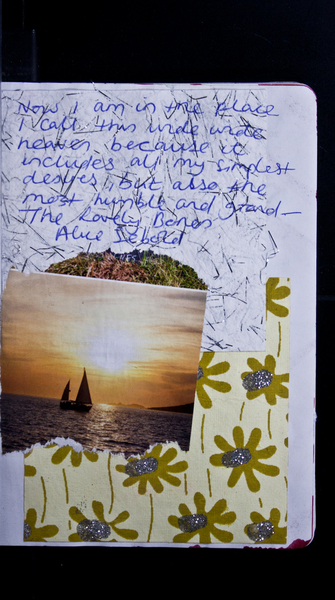 Now I am in the place
I call this wide wide
heaven because it
includes all my simplest
desires but also the
most humble and grand—
The Lovely Bones
Alice Sebold